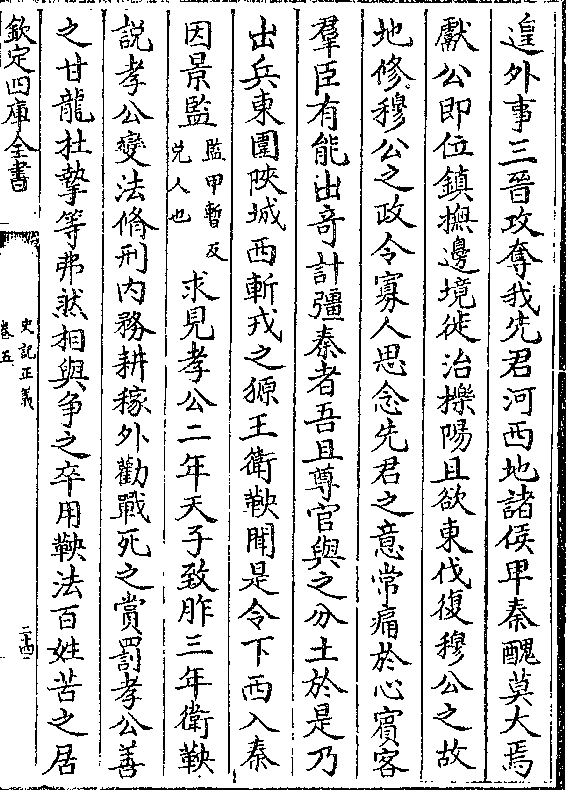 遑外事三晉攻奪我先君河西地諸侯卑秦醜莫大焉
獻公即位鎮撫邊境徙治櫟陽且欲東伐復穆公之故
地修穆公之政令寡人思念先君之意常痛於心賓客
羣臣有能出竒計彊秦者吾且尊官與之分土於是乃
出兵東圍陜城西斬戎之獂王衛鞅聞是令下西入秦
因景監監甲暫反兊人也求見孝公二年天子致胙三年衛鞅
説孝公變法脩刑内務耕稼外勸戰死之賞罰孝公善
之甘龍杜摯等弗然相與争之卒用鞅法百姓苦之居
欽定四庫全書
史記正義
卷五
二十四